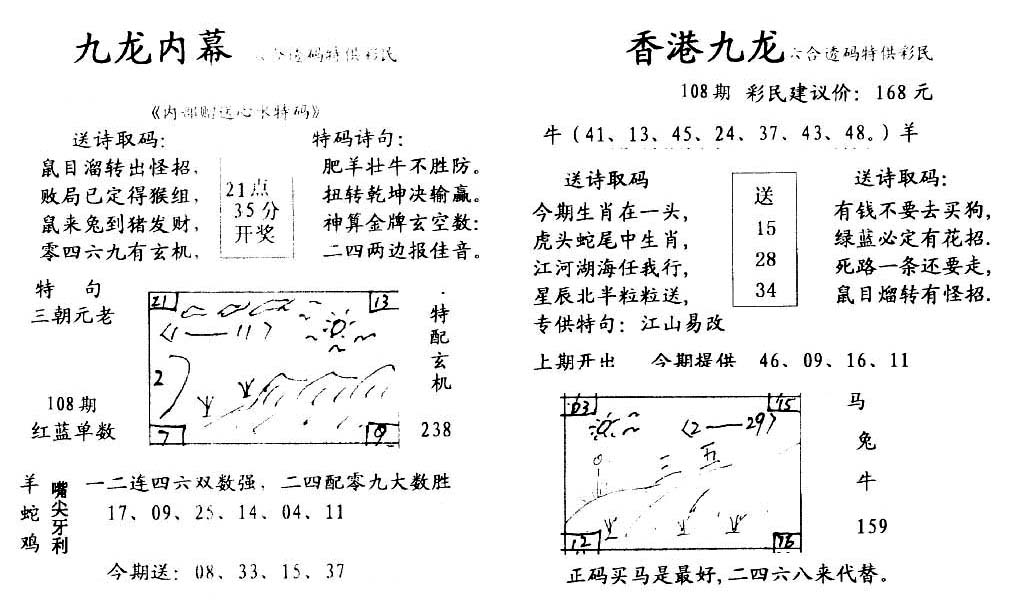 九龙内幕 六合透码特供彩民
《内部赠送心水特码》
送诗取码：
鼠目溜转出怪招，
败局已定得猴组，
鼠来兔到猪发财，
零四六九有玄机，
21点
35分
开奖
特码诗句：
肥羊壮牛不胜防。
扭转乾坤决输赢。
神算金牌玄空数：
二四两边报佳音。
特 句
三朝元老
108期
红蓝单数
21
13
2
7
9
特配玄机
238
羊
蛇
鸡
嘴尖牙利
一二连四六双数强，二四配零九大数胜
17、09、25、14、04、11
今期送：08、33、15、37
香港九龙 六合透码特供彩民
108期 彩民建议价：168元
牛（41、13、45、24、37、43、48。）羊
送诗取码
今期生肖在一头，
虎头蛇尾中生肖，
江河湖海任我行，
星辰北半粒粒送，
专供特句：江山易改
送
15
28
34
送诗取码：
有钱不要去买狗，
绿蓝必定有花招.
死路一条还要走，
鼠目熘转有怪招.
上期开出 今期提供 46、09、16、11
03
15
〈2——29〉
三 五
12
76
马
兔
牛
159
正码买马是最好，二四六八来代替。